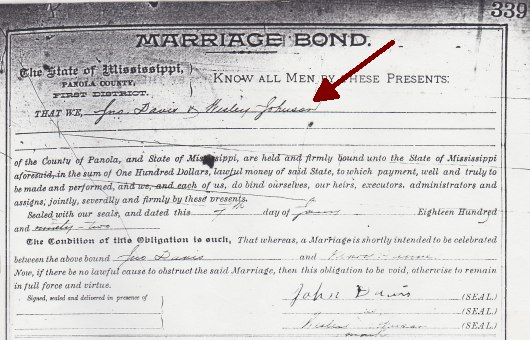 339
MARRIAGE BOND.
The State of Mississippi,
PANOLA COUNTY,
FIRST DISTRICT.
KNOW ALL MEN BY THESE PRESENTS:
THAT WE, Jno. Davis & Wesley Johnson
of the County of Panola, and State of Mississippi, are held and firmly bound unto the State of Mississippi
aforesaid, in the sum of One Hundred Dollars, lawful money of said State, to which payment, well and truly to
be made and performed, and we, and each of us, do bind ourselves, our heirs, executors, administrators and
assigns, jointly, severally and firmly by these presents.
Sealed with our seals, and dated this 7th day of Jany Eighteen Hundred
and ninety-two
The Condition of this Obligation is such, That whereas, a Marriage is shortly intended to be celebrated
between the above bound Jno Davis and
Now, if there be no lawful cause to obstruct the said Marriage, then this obligation to be void, otherwise to remain
in full force and virtue.
Signed, sealed and delivered in presence of
John Davis (SEAL.)
(SEAL.)
(SEAL.)
mark